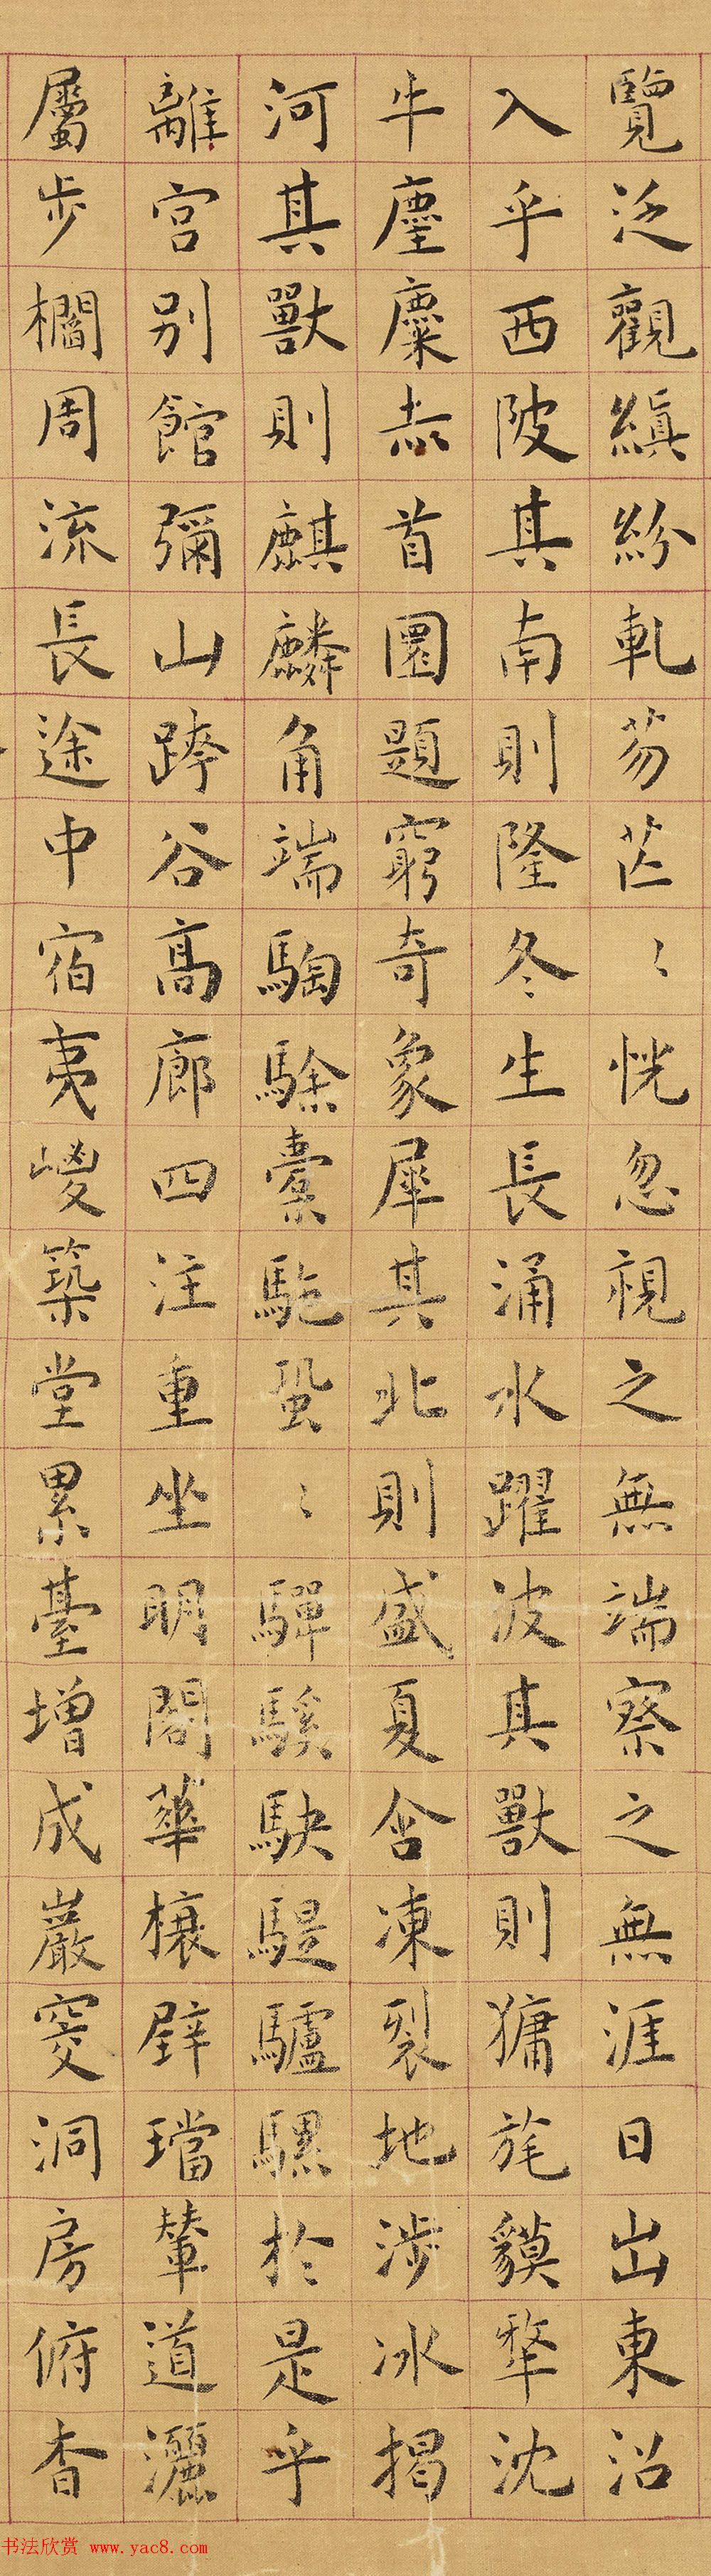 覽泛觀縝紛軋芴芒〻恍忽視之無端察之無涯日出東沼
入乎西陂其南則隆冬生長涌水躍波其獸則㺎旄貘犛沈
牛麈麋赤首圜題窮奇象犀其北則盛夏含凍裂地涉冰揭
河其獸則麒麟角端騊駼橐駞蛩〻驒騱駃騠驢騾於是乎
離宮別館彌山跨谷高廊四注重坐明閣華榱璧璫輦道灑
屬步櫩周流長途中宿夷嵕築堂累臺增成巖窔洞房俯杳
书法欣赏 www.yac8.com